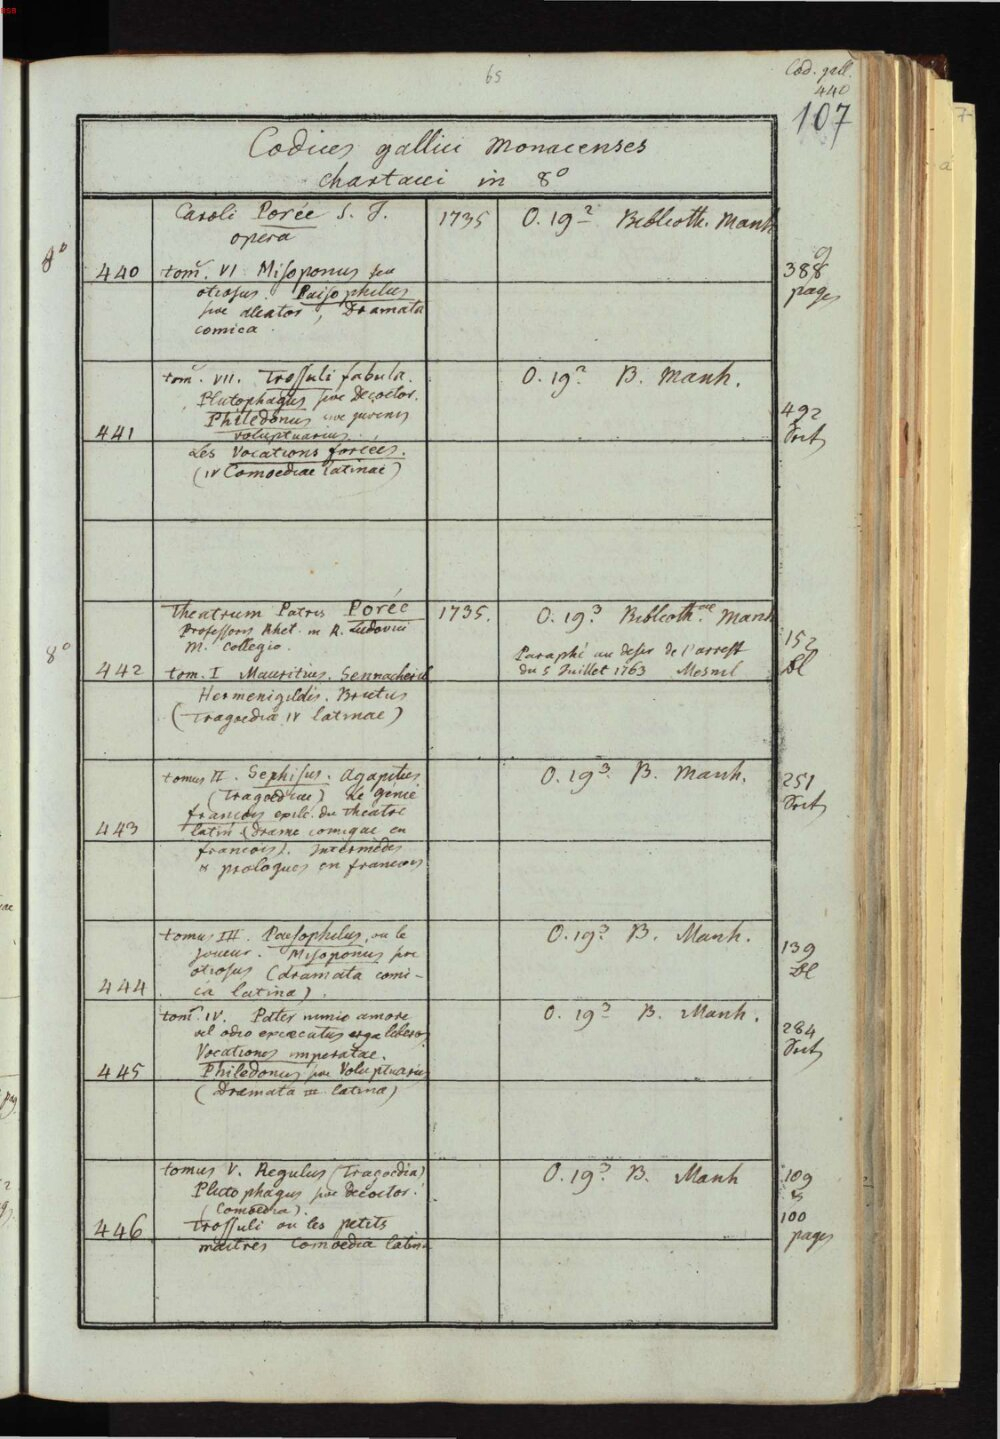 BSB
65
Cod. gall.
440
107
Codices gallici Monacenses
chartacei in 8º
8º
Caroli Porée S. J.
opera
1735
O. 19² Biblioth. Manh
440
tom. VI. Misoponus seu
otiosus. Paisophilus
sive aleator, Dramata
comica
388
pages
tom. VII. Trossuli fabula.
Plutophagus sive Decoctor.
Philedonus sive juvenis
voluptuarius.
Les Vocations forcées.
(IV Comoediae latinae)
441
O. 19² B. Manh.
492
8º
Theatrum Patris Porée
Professoris Rhet. in R. Ludovici
M. Collegio.
1735.
O. 19³ Biblioth.ae Manh
Paraphé au desir de l'arrest
du 5 Juillet 1763 Mesnil
442
tom. I Mauritius. Sennacherib
Hermenigildis. Brutus
(Tragoedia IV latinae)
152
Bl
tomus II. Sephisus. Agapitus
(Tragoediae) Le genie
francois exilé du theatre
latin (drame comique en
francois). Intermèdes
& prologues en francois
443
O. 19³ B. Manh.
251
tomus III. Paisophilus, ou le
joueur. Misoponus sive
otiosus (dramata comi-
ca latina).
444
O. 19³ B. Manh.
139
Bl
tom. IV. Pater nimio amore
vel odio excaecatus erga liberos
Vocationes imperatae.
Philedonus sive Voluptuarius
(Dramata III latina)
445
O. 19³ B. Manh.
284
tomus V. Regulus (Tragoedia)
Plutophagus sive Decoctor.
(Comoedia).
Trossuli ou les petits
maitres Comoedia latin
446
O. 19³ B. Manh
109
&
100
pages